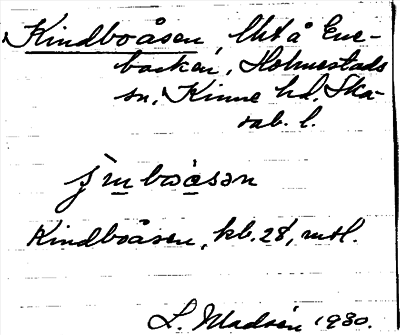 Kindboåsen, lht å Ene-
backen, Holmestads
sn, Kinne hd, Ska-
rab. l.
Kindboåsen, kb. 28, mtl.
L. Modéen 1930.